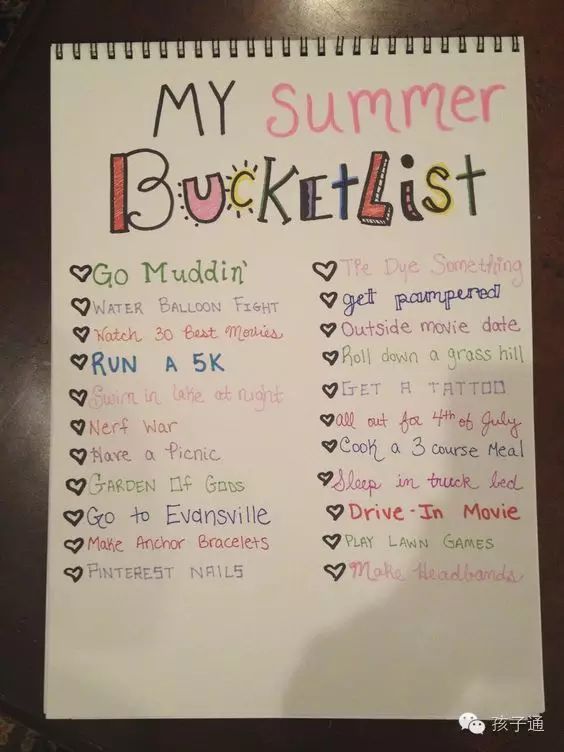 MY Summer
BUCKETLiST
Go Muddin'
WATER BALLOON FIGHT
Watch 30 Best Movies
RUN A 5K
Swim in lake at night
Nerf War
Have a Picnic
GARDEN OF GODS
Go to Evansville
Make Anchor Bracelets
PINTEREST NAILS
Tie Dye Something
get pampered
Outside movie date
Roll down a grass hill
GET A TATTOO
all out for 4th of July
Cook a 3 course Meal
Sleep in truck bed
DRive-In Movie
PLAY LAWN GAMES
Make Headbands
孩子通